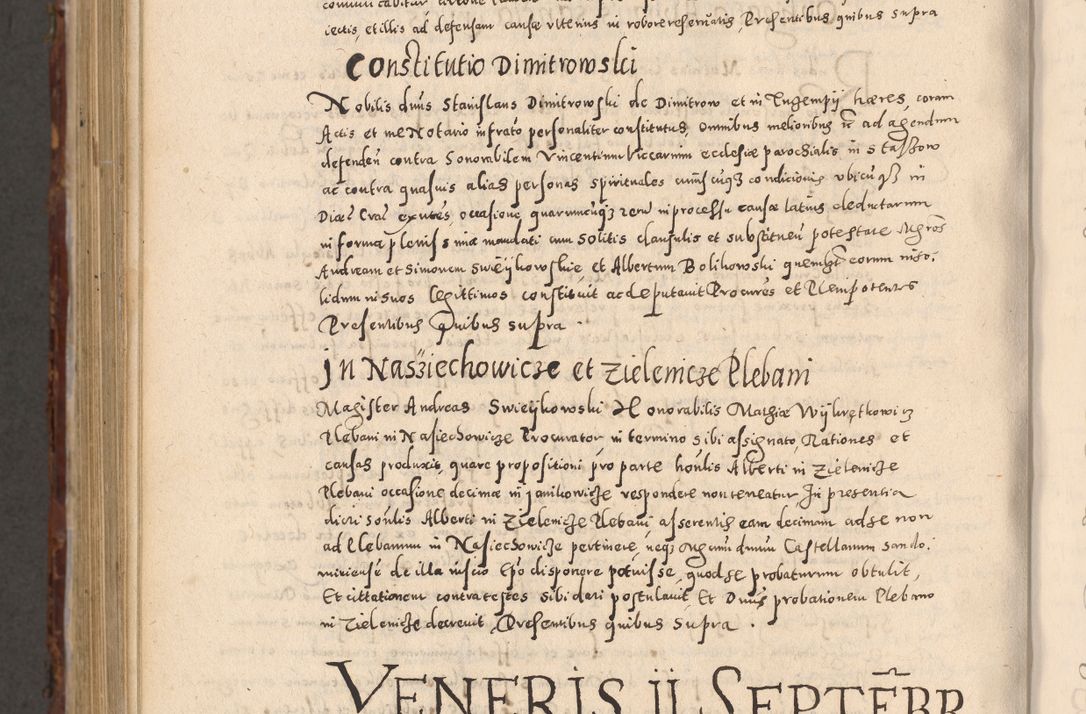 iectis, et illis ad defensam causæ vlterius in robore reseruatis, Presentibus quibus supra
Constitutio Dimitrowski
Nobilis dnus Stanislaus Dimitrowski de Dimitrow et in Lugempij hæres, coram
Actis et me Notario infrato personaliter constitutus, omnibus melioribus etc ad agendum
defenden contra honorabilem Vincentium Viccarium ecclesiæ parochialis in Stassow
ac contra quasuis alias personas spirituales cuiusq3 condicionis vbicuq3 in
Diæc Crac exñtes, occasione quarumcuq3 rerum in processu causæ latius deductarum
in forma plenissima mandati cum solitis clausulis et substituen potestate Mgros
Andream et Simonem Swieykowskie, et Albertum Bolikowski quemlibet eorum in so-
lidum in suos legittimos constituit ac deputauit Procures et Plenipotentes
Presentibus Quibus supra .
In Nasziechowicze et Zielenicze Plebani
Magister Andreas Swieykowski Honorabilis Mathiæ Wykrętkowicz
Plebani in Nasiechowicze Procurator in termino sibi assignato, Rationes et
causas produxit, quare propositioni pro parte honlis Alberti in Zielenicze
Plebani occasione decimæ in Janikowicze respondere non teneatur, In presentia
dicti honlis Alberti in Zielenicze Plebani asserentis eam decimam ad se non
ad Plebanum in Nasiechowicze pertinere, neq3 Mgcum dnum Castellanum Sando-
miriensẽ de illa inscio Epo disponere potuisse, quod se probaturum obtulit,
Et cittationem contra testes sibi dari postulauit, Et Dnus probationem Plebano
in Zielenicze decreuit, Presentibus quibus supra .
VENERIS II SEPTEBR